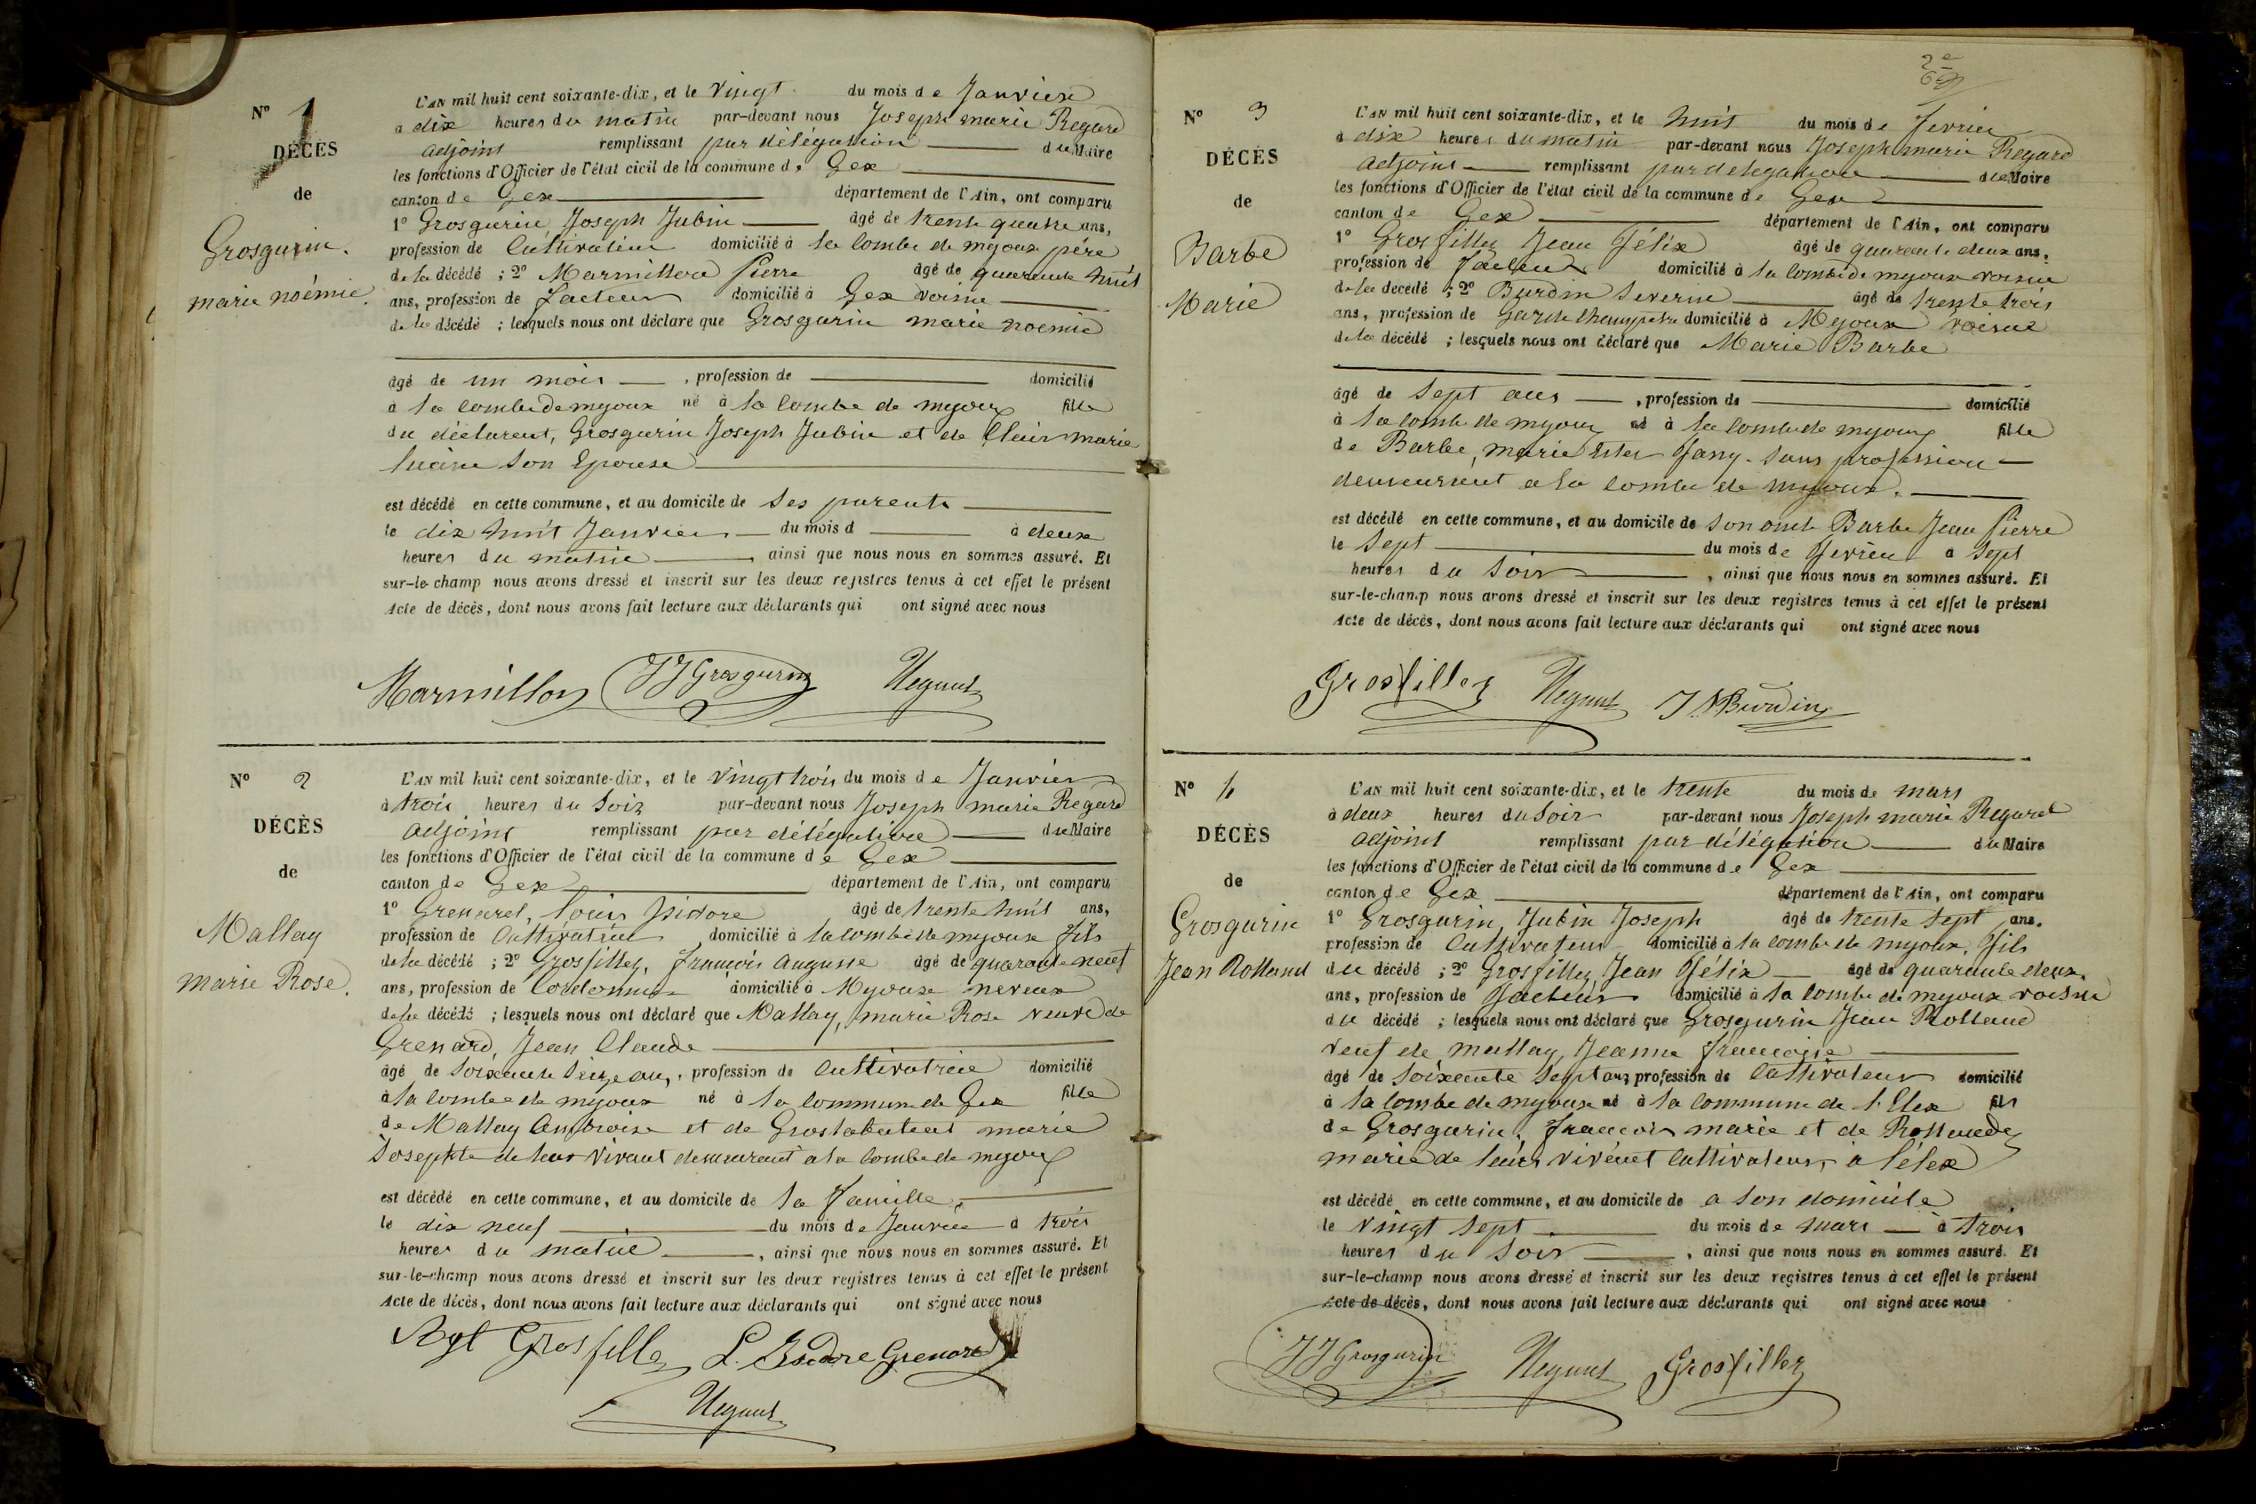 N° 1
DÉCÈS
de
Grosgurin.
marie noémie.
L'AN mil huit cent soixante-dix, et le vingt du mois de Janvier
à dix heures du matin par-devant nous Joseph marie Regard
adjoint remplissant par délégation du Maire
les fonctions d'Officier de l'état civil de la commune de Gex
canton de Gex département de l'Ain, ont comparu
1° Grosgurin Joseph Jubin âgé de trente quatre ans,
profession de Cultivateur domicilié à la combe de myoux père
de la décédé ; 2° Marmillon Pierre âgé de quarante huit
ans, profession de facteur domicilié à Gex voisin
de la décédé ; lesquels nous ont déclaré que Grosgurin marie noemie
âgé de un mois , profession de domicilié
à la combe de myoux né à la combe de myoux fille
du déclarent, Grosgurin Joseph Jubin et de Clair marie
lucine son Epouse
est décédé en cette commune, et au domicile de ses parents
le dix huit Janvier du mois d à deux
heures du matin ainsi que nous nous en sommes assuré. Et
sur-le-champ nous avons dressé et inscrit sur les deux registres tenus à cet effet le présent
Acte de décès, dont nous avons fait lecture aux déclarants qui ont signé avec nous
Marmillon JJ Grosgurin Regard
N° 2
DÉCÈS
de
Mallay
marie Rose.
L'AN mil huit cent soixante-dix, et le vingt trois du mois de Janvier
à trois heures du soir par-devant nous Joseph marie Regard
adjoint remplissant par délégation du Maire
les fonctions d'Officier de l'état civil de la commune de Gex
canton de Gex département de l'Ain, ont comparu
1° Grenard, Louis Isidore âgé de trente huit ans,
profession de Cultivateur domicilié à la combe de myoux fils
de la décédé ; 2° Grosfilley, François Auguste âgé de quarante neuf
ans, profession de Cordonnier domicilié à Myoux neveux
de la décédé ; lesquels nous ont déclaré que Mallay, marie Rose veuve de
Grenard, Jean Claude
âgé de soixante seize ans, profession de Cultivatrice domicilié
à la combe de myoux né à la commune de Gex fille
de Mallay Ambroise et de Grostabutant marie
Josephte de leur vivant demeurant a la combe de myoux
est décédé en cette commune, et au domicile de sa famille,
le dix neuf du mois de Janvier à trois
heures du matin , ainsi que nous nous en sommes assuré. Et
sur-le-champ nous avons dressé et inscrit sur les deux registres tenus à cet effet le présent
Acte de décès, dont nous avons fait lecture aux déclarants qui ont signé avec nous
Agt Grosfilley L. Isidore Grenard
Regard
2e
N° 3
DÉCÈS
de
Barbe
Marie
L'AN mil huit cent soixante-dix, et le huit du mois de fevrier
à dix heures du matin par-devant nous Joseph marie Regard
adjoint remplissant par delegation du Maire
les fonctions d'Officier de l'état civil de la commune de Gex
canton de Gex département de l'Ain, ont comparu
1° Grosfilley Jean Félix âgé de quarante deux ans,
profession de facteur domicilié à la combe de myoux voisin
de la décédé ; 2° Burdin Severin âgé de trente trois
ans, profession de Garde champetre domicilié à Myoux voisin
de la décédé ; lesquels nous ont déclaré que Marie Barbe
âgé de sept ans , profession de domicilié
à la combe de myoux né à la combe de myoux fille
de Barbe, marie Ester fany. sans profession
demeurant a la combe de myoux.
est décédé en cette commune, et au domicile de son oncle Barbe Jean Pierre
le sept du mois de fevrier à sept
heures du soir , ainsi que nous nous en sommes assuré. Et
sur-le-champ nous avons dressé et inscrit sur les deux registres tenus à cet effet le présent
Acte de décès, dont nous avons fait lecture aux déclarants qui ont signé avec nous
Grosfilley Regard J S Burdin
N° 4
DÉCÈS
de
Grosgurin
Jean Rolland
L'AN mil huit cent soixante-dix, et le trente du mois de mars
à deux heures du soir par-devant nous Joseph marie Regard
adjoint remplissant par délégation du Maire
les fonctions d'Officier de l'état civil de la commune de Gex
canton de Gex département de l'Ain, ont comparu
1° Grosgurin, Jubin Joseph âgé de trente sept ans,
profession de Cultivateur domicilié à la combe de myoux, fils
du décédé ; 2° Grosfilley Jean Félix âgé de quarante deux,
ans, profession de facteur domicilié à la combe de myoux voisin
du décédé ; lesquels nous ont déclaré que Grosgurin Jean Rolland
veuf de mallay, Jeanne françoise
âgé de soixante sept ans profession de Cultivateur domicilié
à la combe de myoux né à la commune de l'Elex fils
de Grosgurin, françois marie et de Rollandez
marie de leurs vivent Cultivateurs à lélex
est décédé en cette commune, et au domicile de a son domicile
le vingt sept du mois de mars à trois
heures du soir , ainsi que nous nous en sommes assuré. Et
sur-le-champ nous avons dressé et inscrit sur les deux registres tenus à cet effet le présent
Acte de décès, dont nous avons fait lecture aux déclarants qui ont signé avec nous
JJ Grosgurin Regard Grosfilley